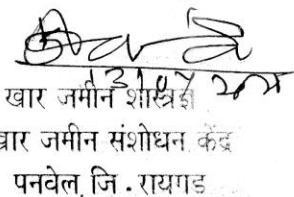 13/07/2021
खार जमीन शास्त्रज्ञ
खार जमीन संशोधन केंद्र
पनवेल जि. रायगड